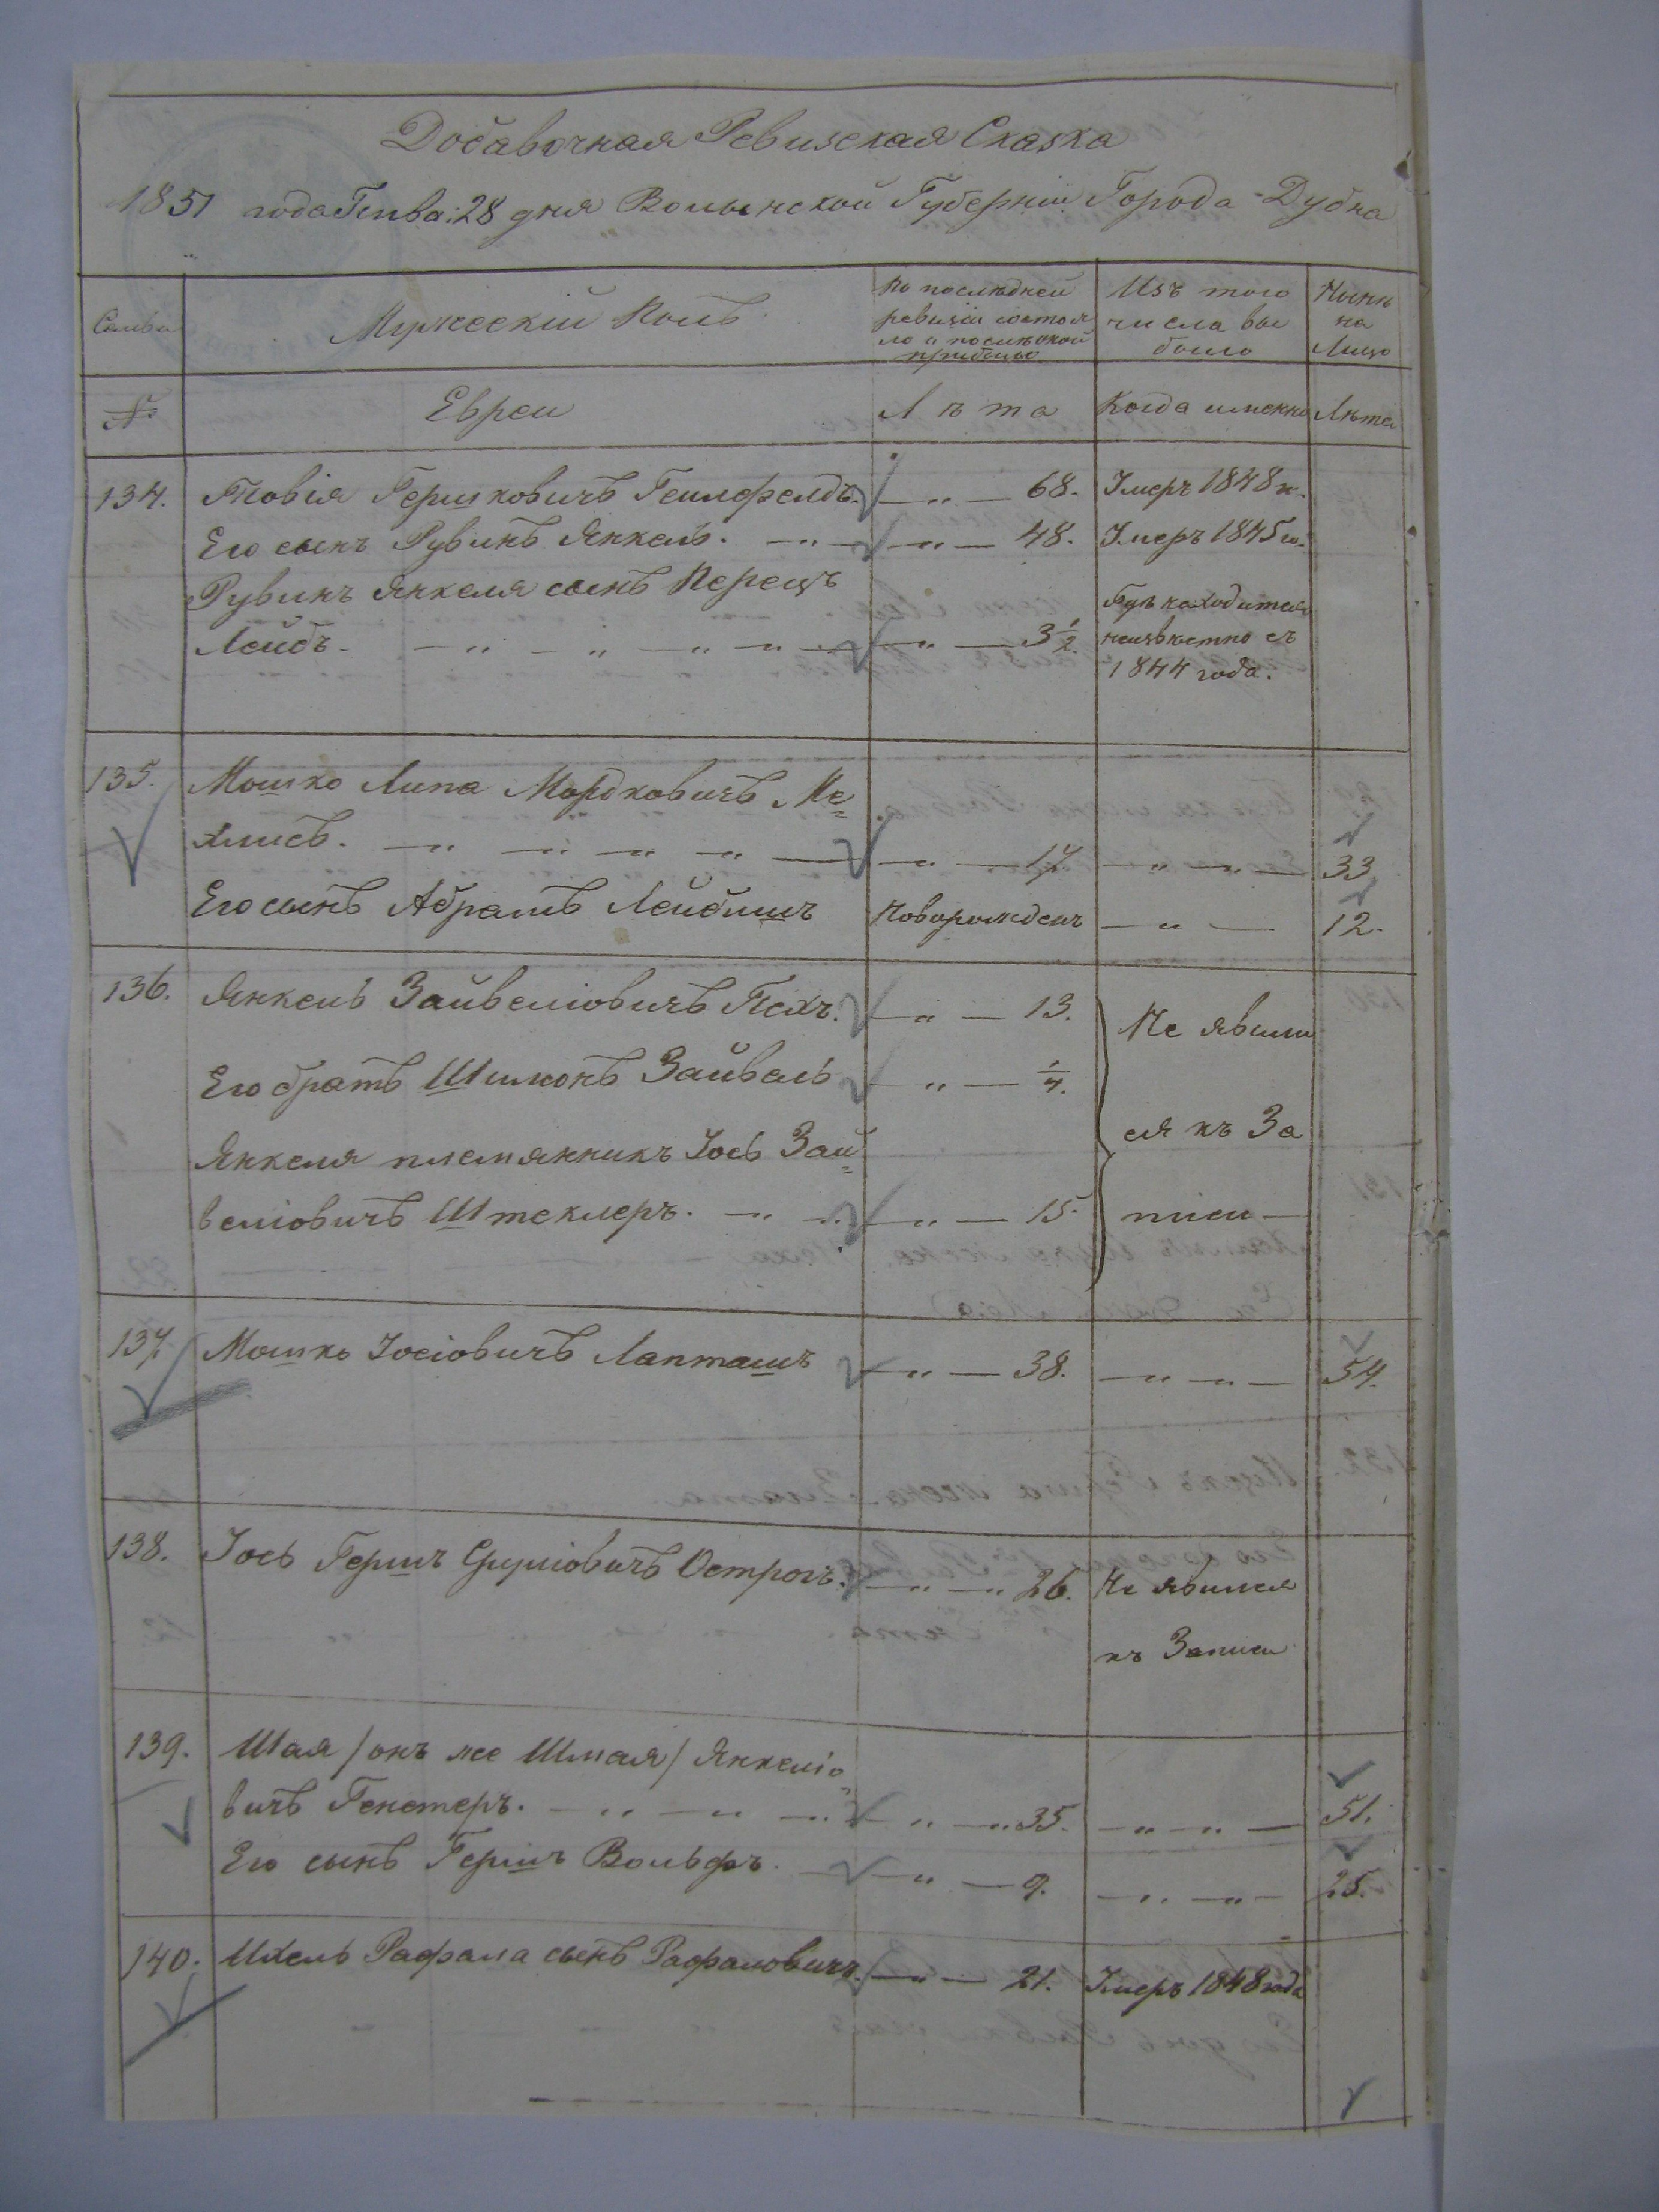 Добавочная Ревизская Сказка
1851 года Генва: 28 дня Волынской Губерніи Города Дубна
Семьи
Мужескій Полъ
По последней ревизіи состояло и после оной прибыло
Изъ того числа выбыло
Нынѣ на Лицо
№
Евреи
Лѣта
Когда именно
Лѣта
134. Товія Гершковичъ Геилфелдъ. — „ — 68. Умеръ 1848 г.
Его сынъ Рувинъ Янкель. — „ — „ — 48. Умеръ 1845 го.
Рувинъ Янкеля сынъ Перецъ
Лейбъ. — „ — „ — „ — „ — 3 1/2. Гдѣ находится
неизвѣстно съ
1844 года.
135. Мошко Липа Мордковичъ Ме=
хлисъ. — „ — „ — „ — „ — 17. — „ — „ — 33
Его сынъ Абрамъ Лейбишъ Новорожденъ — „ — 12.
136. Янкель Зайвеліовичъ Пехъ. — „ — 13. Не явили
Его братъ Шимонъ Зайвель — „ — 1/4.
Янкеля племянникъ Іось Зай= ся къ За
веліовичъ Штеклеръ. — „ — „ — 15. писи —
137. Мошко Іосіовичъ Лапташъ — „ — 38. — „ — „ — 54.
138. Іось Гершъ Сруліовичъ Острогъ. — „ — „ 26. Не явился
къ Записи
139. Шая /онъ же Шмая/ Янкеліо=
вичъ Генстеръ. — „ — „ — „ — „ 35. — „ — „ — 51.
Его сынъ Гершъ Вольфъ. — „ — 9. — „ — „ — 25.
140. Ихель Рафала сынъ Рафаловичъ. — „ — 21. Умеръ 1848 года